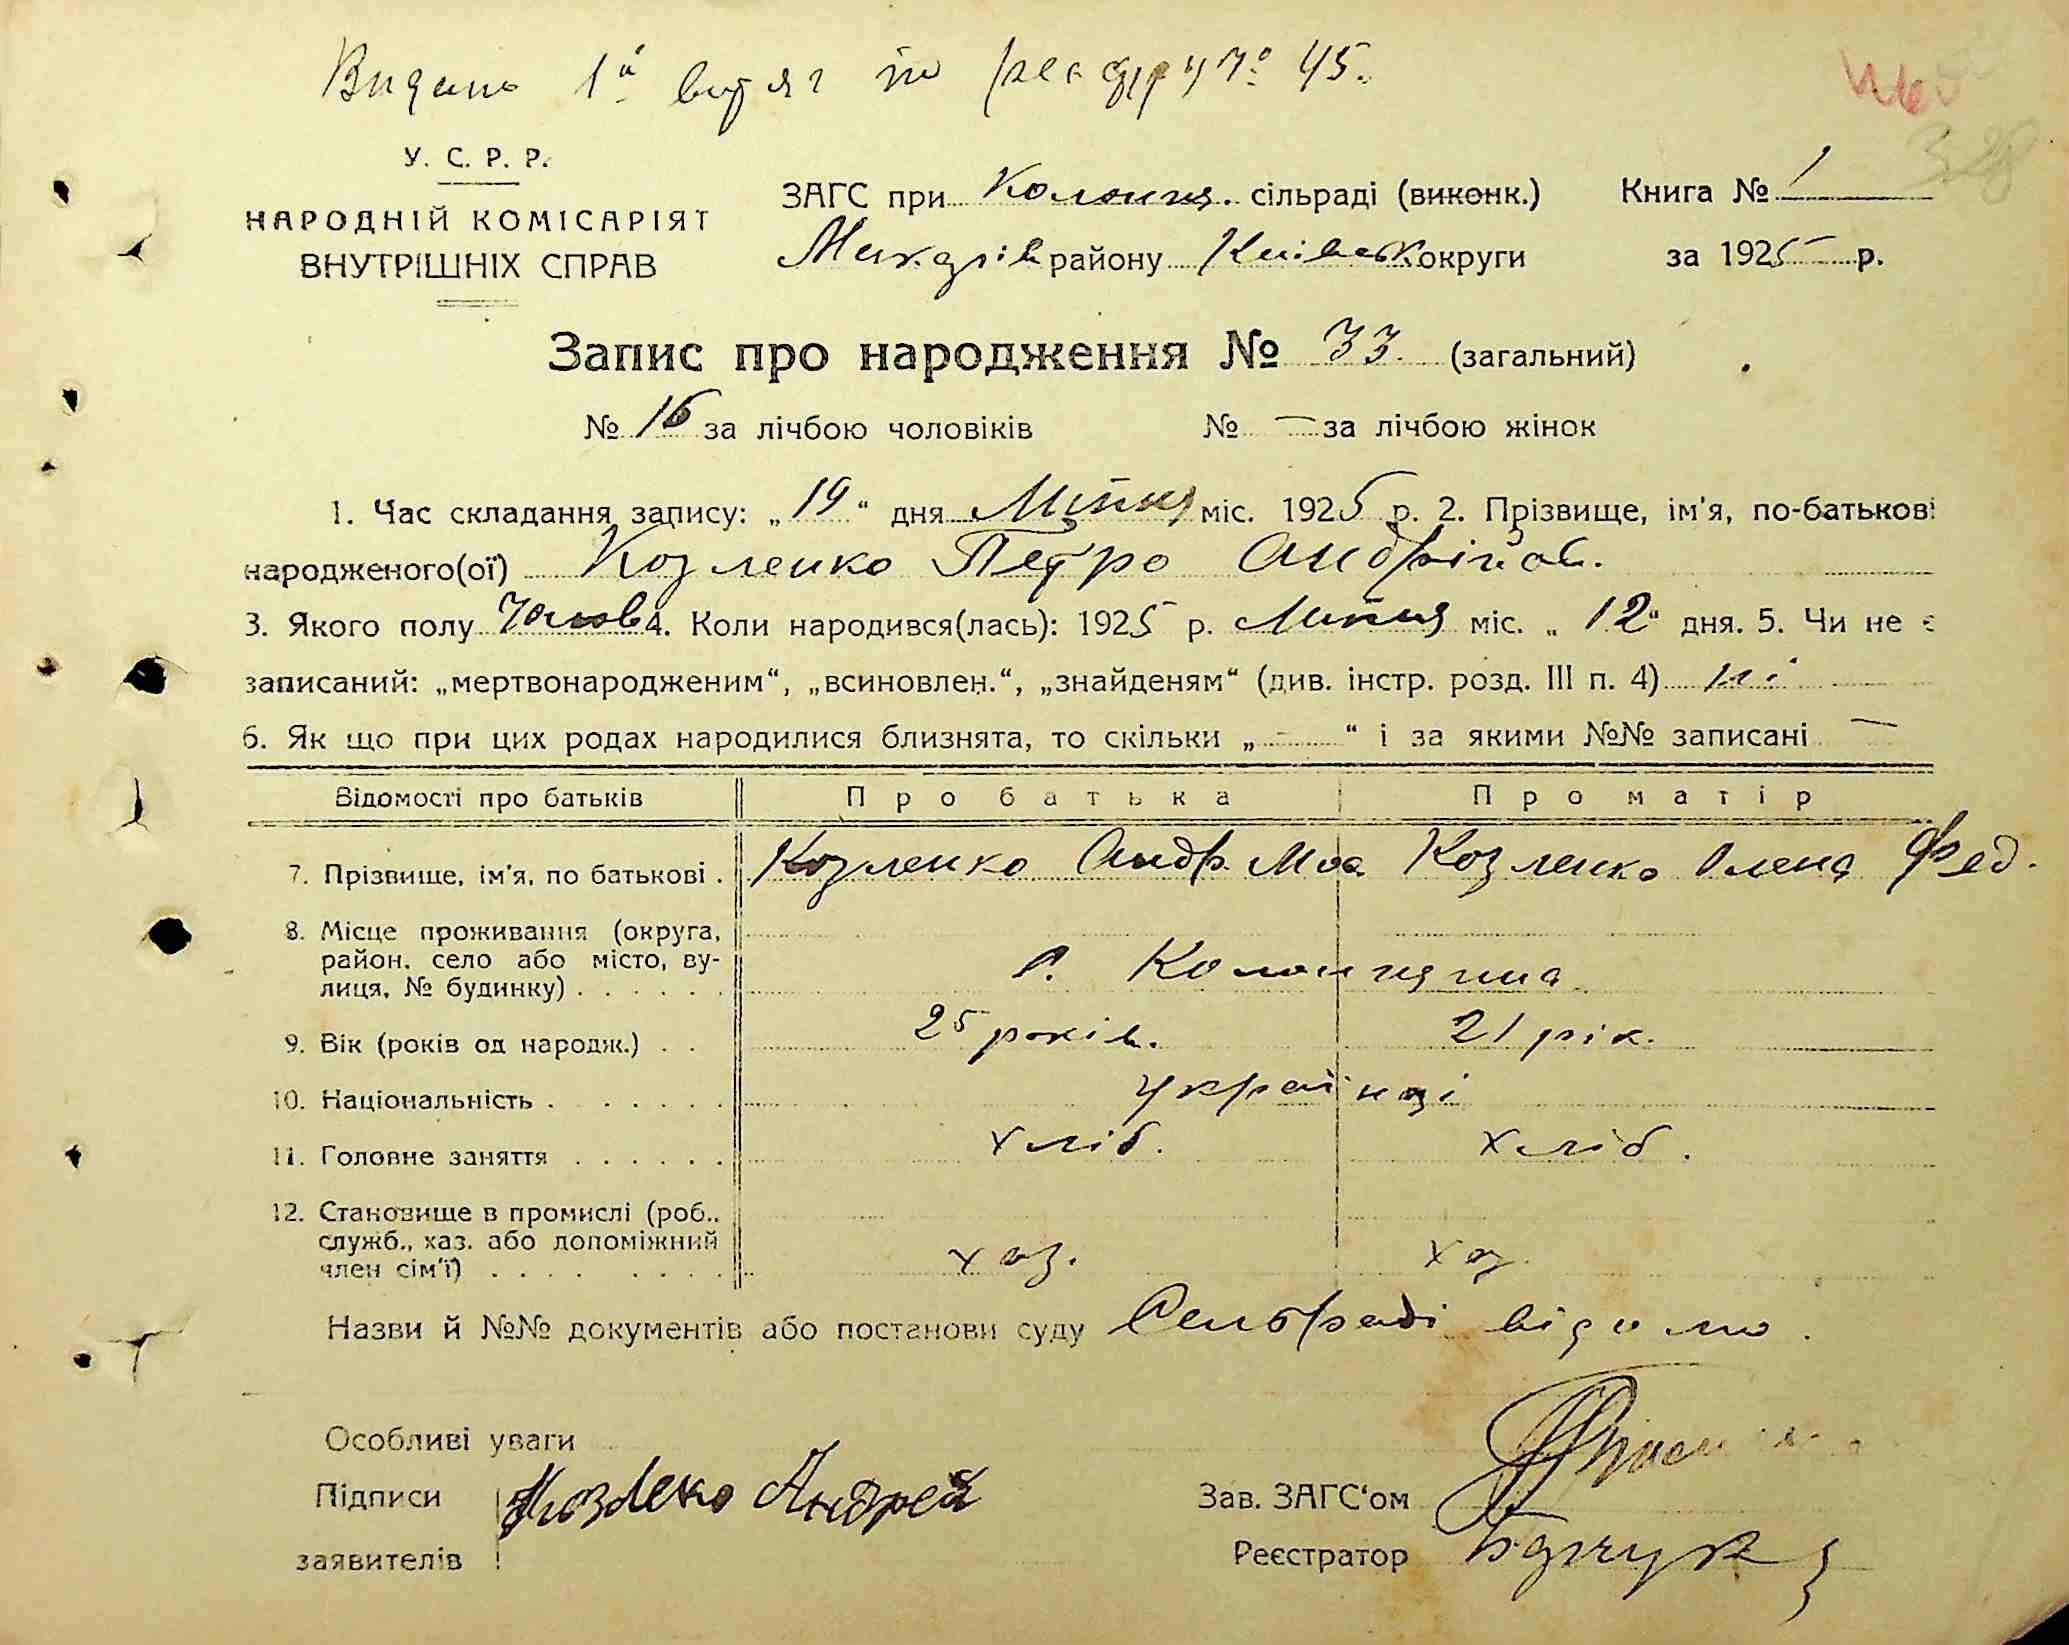 Видано 1й витяг по реєстру № 45.
У. С. Р. Р.
НАРОДНІЙ КОМІСАРІЯТ
ВНУТРІШНІХ СПРАВ
ЗАГС при Колонщ. сільраді (виконк.) Книга № 1
району Київськ округи за 1925 р.
Запис про народження № 33. (загальний)
№ 16 за лічбою чоловіків № — за лічбою жінок
1. Час складання запису: „19“ дня Липня міс. 1925 р. 2. Прізвище, ім'я, по-батькові
народженого(ої) Козленко Петро Андрійов.
3. Якого полу Чолов 4. Коли народився(лась): 1925 р. Липня міс. „12“ дня. 5. Чи не є
записаний: „мертвонародженим“, „всиновлен.“, „знайденям“ (див. інстр. розд. III п. 4) ні
6. Як що при цих родах народилися близнята, то скільки „—“ і за якими №№ записані —
Відомості про батьків Про батька Про матір
7. Прізвище, ім'я, по батькові . Козленко Андр. Козленко Олена Фед.
8. Місце проживання (округа,
район, село або місто, ву-
лиця, № будинку) . . . . . . с. Колонщина
9. Вік (років од народж.) . . 25 років. 21 рік.
10. Національність . . . . . . українці
11. Головне заняття . . . . . . хліб. хліб.
12. Становище в промислі (роб.,
служб., хаз. або допоміжний
член сім'ї) . . . . . . . . хаз. хаз.
Назви й №№ документів або постанови суду Сельраді відомо.
Особливі уваги
Підписи Козлеко Андрей
заявителів
Зав. ЗАГС'ом
Реєстратор